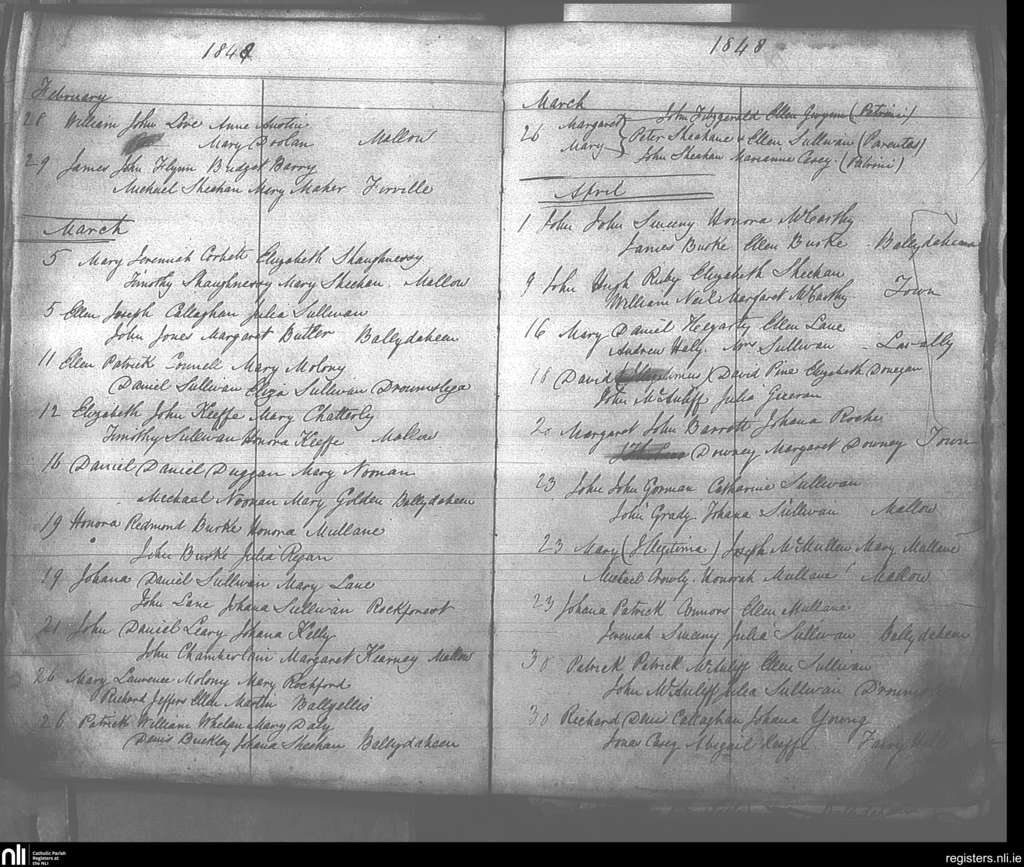 1848
February
28 William John Love Anne Austin
Mary Doolan Mallow
29 James John Flynn Bridget Barry
Michael Sheehan Mary Maher Firville
March
5 Mary Jeremiah Corbett Elizabeth Shaughnessy
Timothy Shaughnessy Mary Sheehan. Mallow
5 Ellen Joseph Callaghan Julia Sullivan
John Jones Margaret Butler Ballydaheen
11 Ellen Patrick Connell Mary Molony
Daniel Sullivan Eliza Sullivan Dromslega
12 Elizabeth John Keeffe Mary Chatterly
Timothy Sullivan Honora Keeffe Mallow
16 Daniel Daniel Duggan Mary Noonan
Michael Noonan Mary Golden Ballydaheen
19 Honora Redmond Burke Honora Mullane
John Burke Julia Regan
19 Johana Daniel Sullivan Mary Lane
John Lane Johana Sullivan Rockforest
21 John Daniel Leary Johana Kelly
John Chamberlain Margaret Kearney Mallow
26 Mary Lawrence Molony Mary Rochford
Richard Jeffers Ellen Martin Ballyellis
26 Patrick William Whelan Mary Daly
Denis Buckley Johana Sheehan Ballydaheen
1848
March
John Fitzgerald Ellen (Patrini)
26 Margaret Mary } Peter Sheehane & Ellen Sullivan (Parentes)
John Sheehan Marianne Casey. (Patrini)
April
1 John John Sweeny Honora McCarthy
James Burke Ellen Burke Ballydaheen
9 John Hugh Ruby Elizabeth Sheehan
William Neil Margaret McCarthy Town
16 Mary Daniel Hegarty Ellen Lane
Andrew Haly. Mrs Sullivan Lavally
18 David David Pine Elizabeth Donegan
John McAuliff Julia
20 Margaret John Barrett Johana Roche
Downey Margaret Downey Town
23 John John Gorman Catharine Sullivan
John Grady Johana Sullivan Mallow
23 Mary (Illegitima) Joseph McMullen Mary Mullane
Michael Crowly. Honorah Mullane Mallow
23 Johana Patrick Connors Ellen Mullane
Jeremiah Sweeny Julia Sullivan Ballydaheen
30 Patrick Patrick McAuliff Ellen Sullivan
John McAuliff Julia Sullivan
30 Richard Denis Callaghan Johana Young
Jonas Casey Abigail Keeffe
nli Catholic Parish
Registers at
the NLI
registers.nli.ie